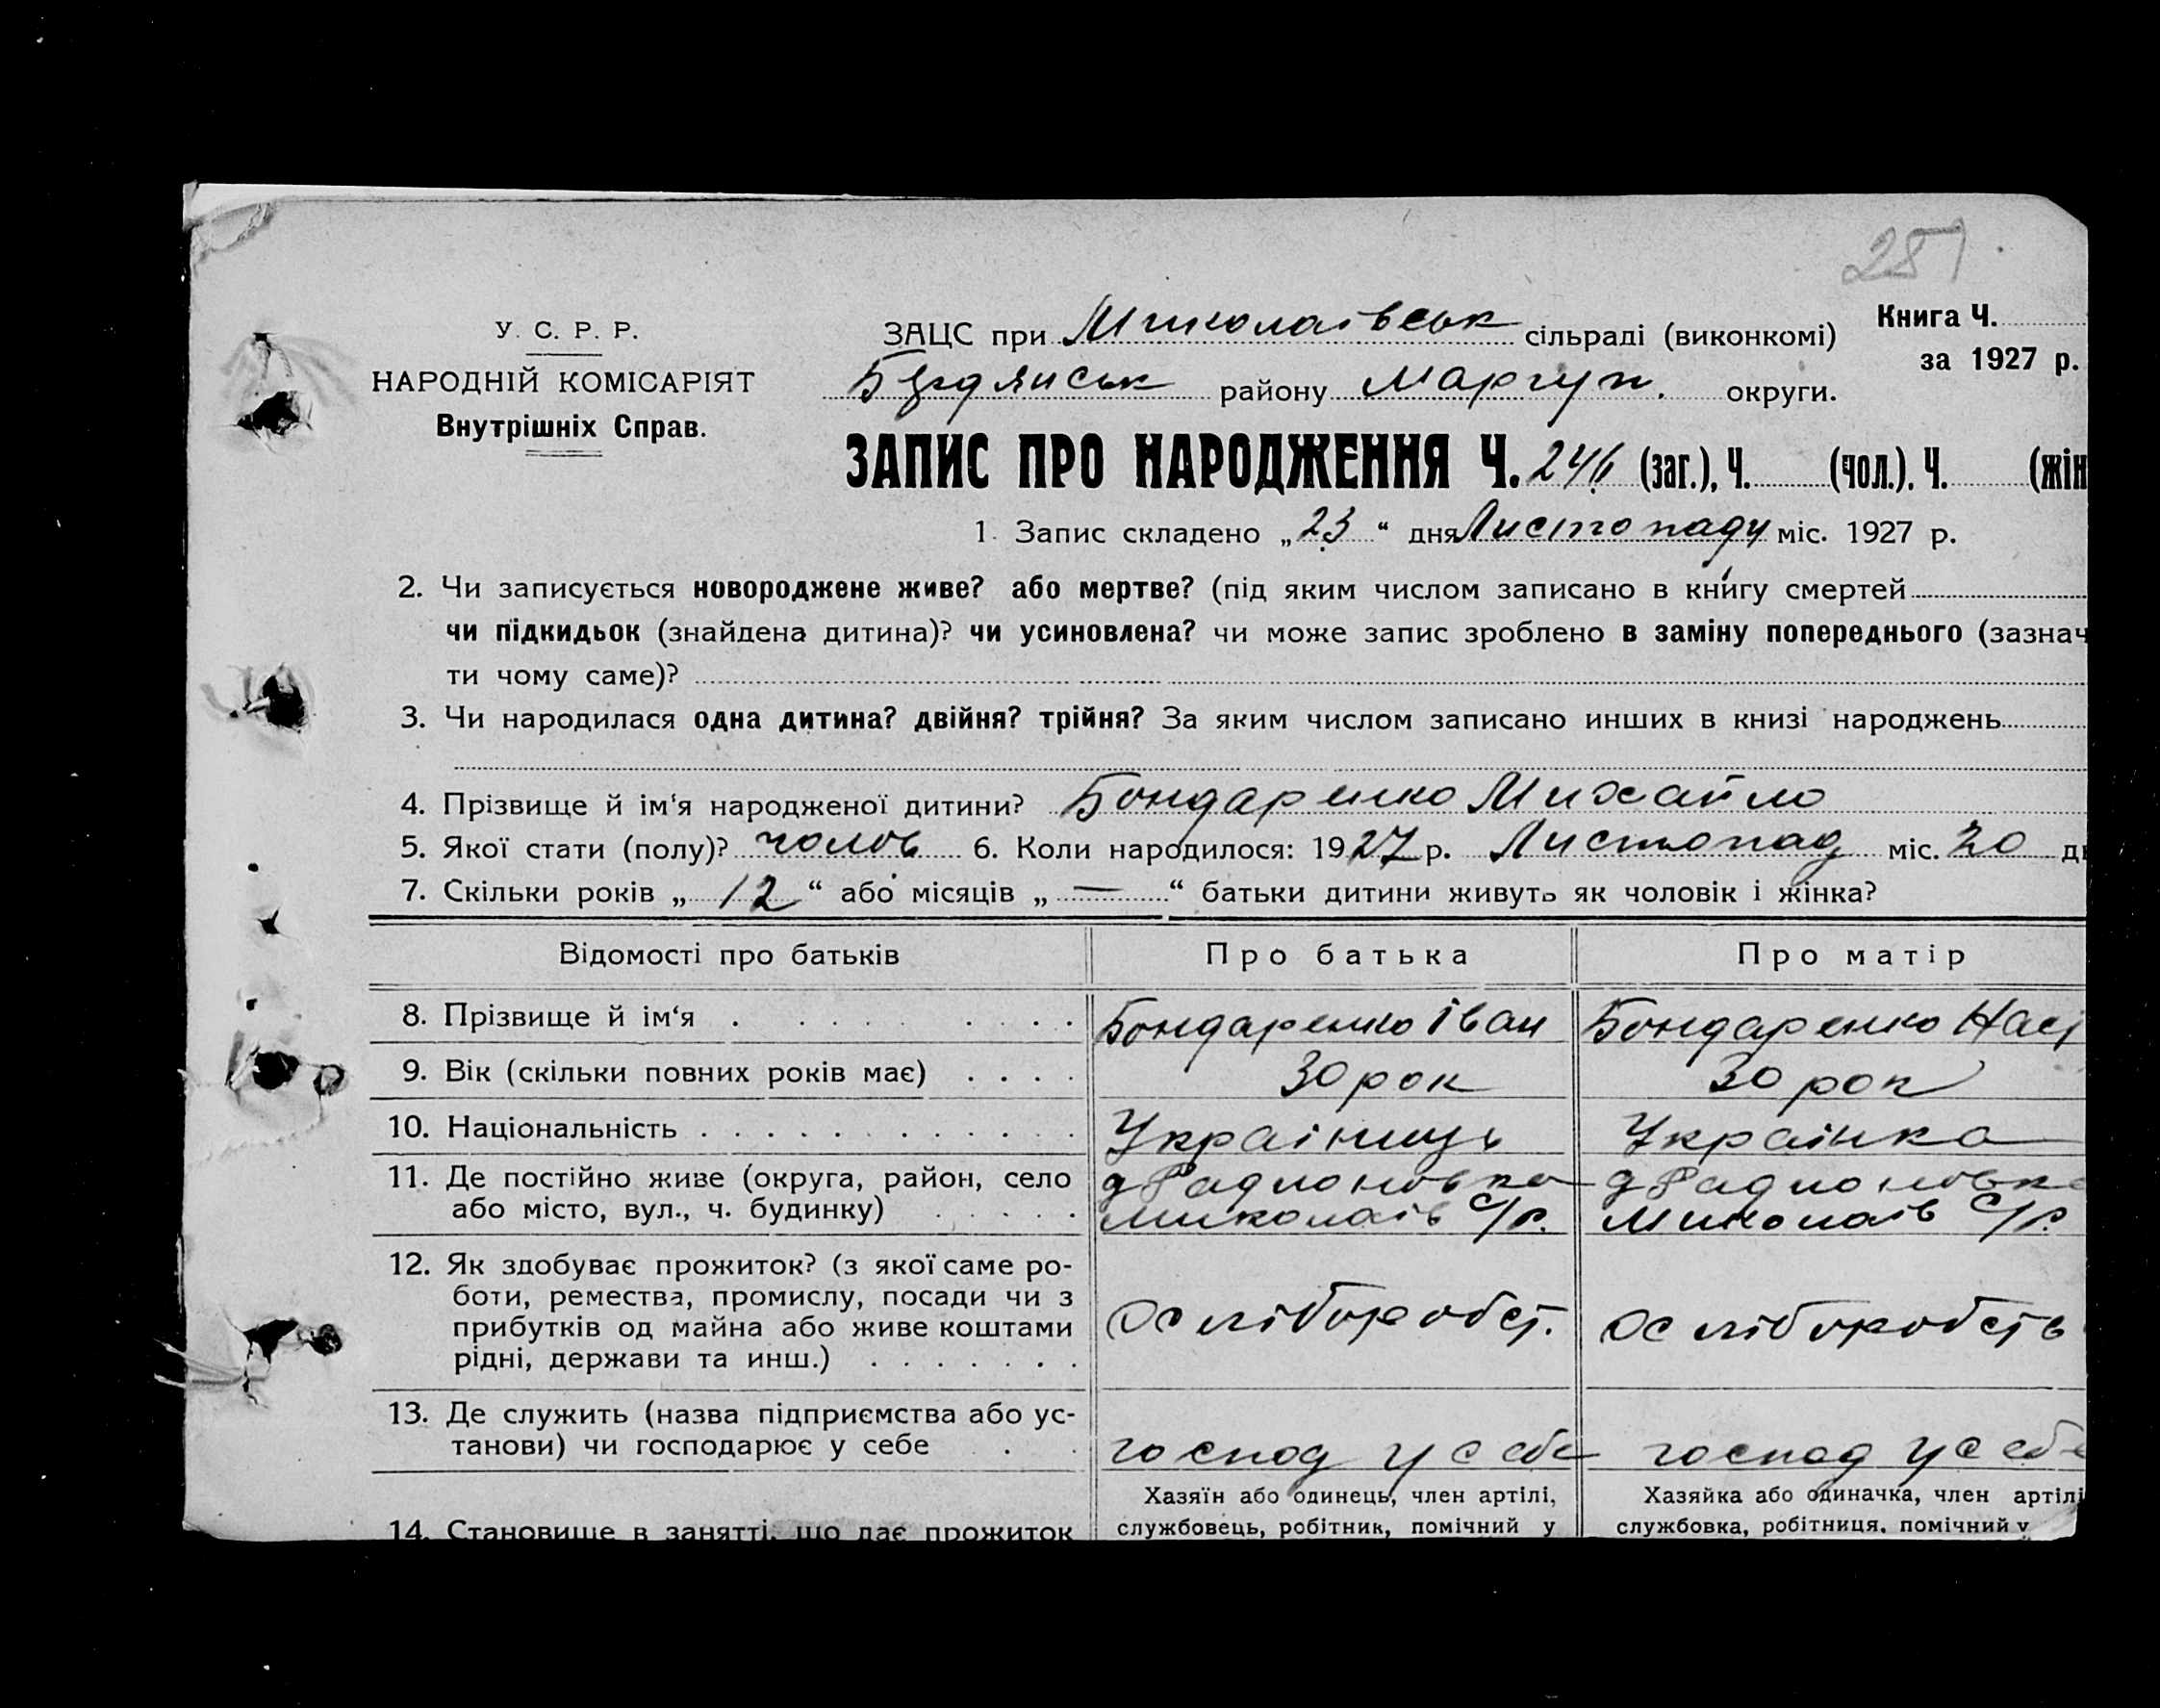 287
У. С. Р. Р.
НАРОДНІЙ КОМІСАРІЯТ
Внутрішніх Справ.
ЗАЦС при Миколаївськ сільраді (виконкомі)
Бердянськ району Маріуп. округи.
Книга Ч.
за 1927 р.
ЗАПИС ПРО НАРОДЖЕННЯ Ч. 246 (заг.), Ч. (чол.), Ч. (жін
1. Запис складено „23“ дня Листопаду міс. 1927 р.
2. Чи записується новороджене живе? або мертве? (під яким числом записано в книгу смертей
чи підкидьок (знайдена дитина)? чи усиновлена? чи може запис зроблено в заміну попереднього (зазнач
ти чому саме)?
3. Чи народилася одна дитина? двійня? трійня? За яким числом записано инших в книзі народжень
4. Прізвище й ім‘я народженої дитини? Бондаренко Михайло
5. Якої стати (полу)? чолов 6. Коли народилося: 1927 р. Листопад міс. 20 д
7. Скільки років „12“ або місяців „—“ батьки дитини живуть як чоловік і жінка?
Відомості про батьків Про батька Про матір
8. Прізвище й ім‘я Бондаренко Іван Бондаренко Наст
9. Вік (скільки повних років має) 30 рок 30 рок
10. Національність Українць Українка
11. Де постійно живе (округа, район, село д Радионовка д Радионовка
або місто, вул., ч. будинку) Миколаїв С/р. Миколаїв С/р.
12. Як здобуває прожиток? (з якої саме ро-
боти, ремества, промислу, посади чи з
прибутків од майна або живе коштами
рідні, держави та инш.)
хліборобст. хліборобств
13. Де служить (назва підприємства або ус-
танови) чи господарює у себе господ у себе господ у себе
Хазяїн або одинець, член артілі, Хазяйка або одиначка, член артілі
14. Становище в занятті, що дає прожиток службовець, робітник, помічний у службовка, робітниця, помічний у